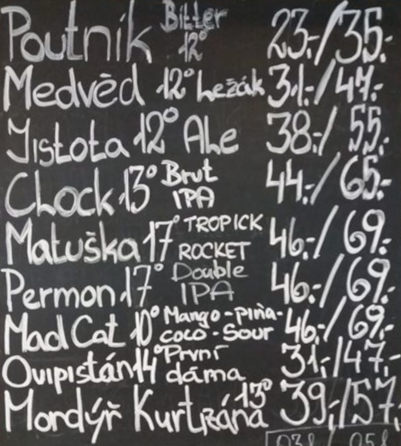 Poutník Bitter 12° 23,-/35,-
Medvěd 12° Ležák 31,-/47,-
Jistota 12° Ale 38,-/55,-
Clock 13° Brut IPA 44,-/65,-
Matuška 17° TROPICK ROCKET 46,-/69,-
Permon 17° Double IPA 46,-/69,-
Mad Cat 10° Mango-piňa-coco-Sour 46,-/69,-
Ovipistán 14° První dáma 31,-/47,-
Mordýř Kurtizána 13° 39,-/57,-